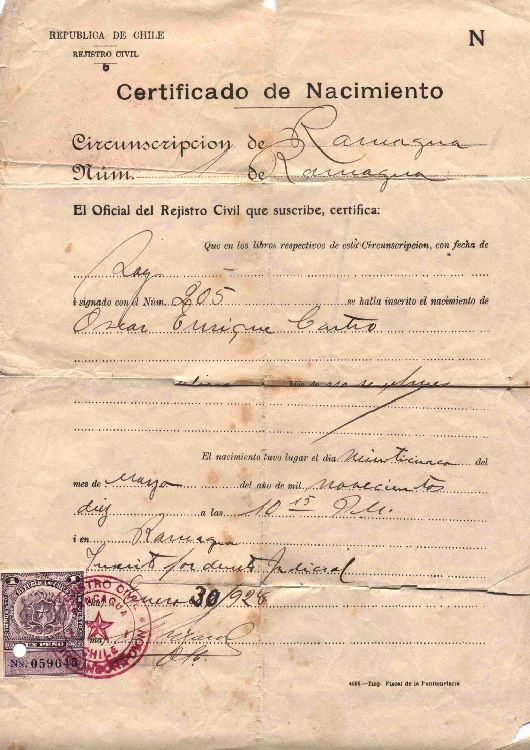 REPUBLICA DE CHILE
N
REJISTRO CIVIL
Certificado de Nacimiento
Circunscripcion de Rancagua
Núm. 1 de Rancagua
El Oficial del Rejistro Civil que suscribe, certifica:
Que en los libros respectivos de esta Circunscripcion, con fecha de
hoy
i signado con el Núm. 205 se halla inscrito el nacimiento de
Oscar Enrique Castro
hijo de
El nacimiento tuvo lugar el dia veinticinco del
mes de Marzo del año de mil novecientos
diez a las 10 15 P.M.
i en Rancagua
Judicial
Enero 30 1928
REJISTRO CIVIL
RANCAGUA
CHILE
1
UN PESO
4696.—Imp. Fiscal de la Penitenciaria